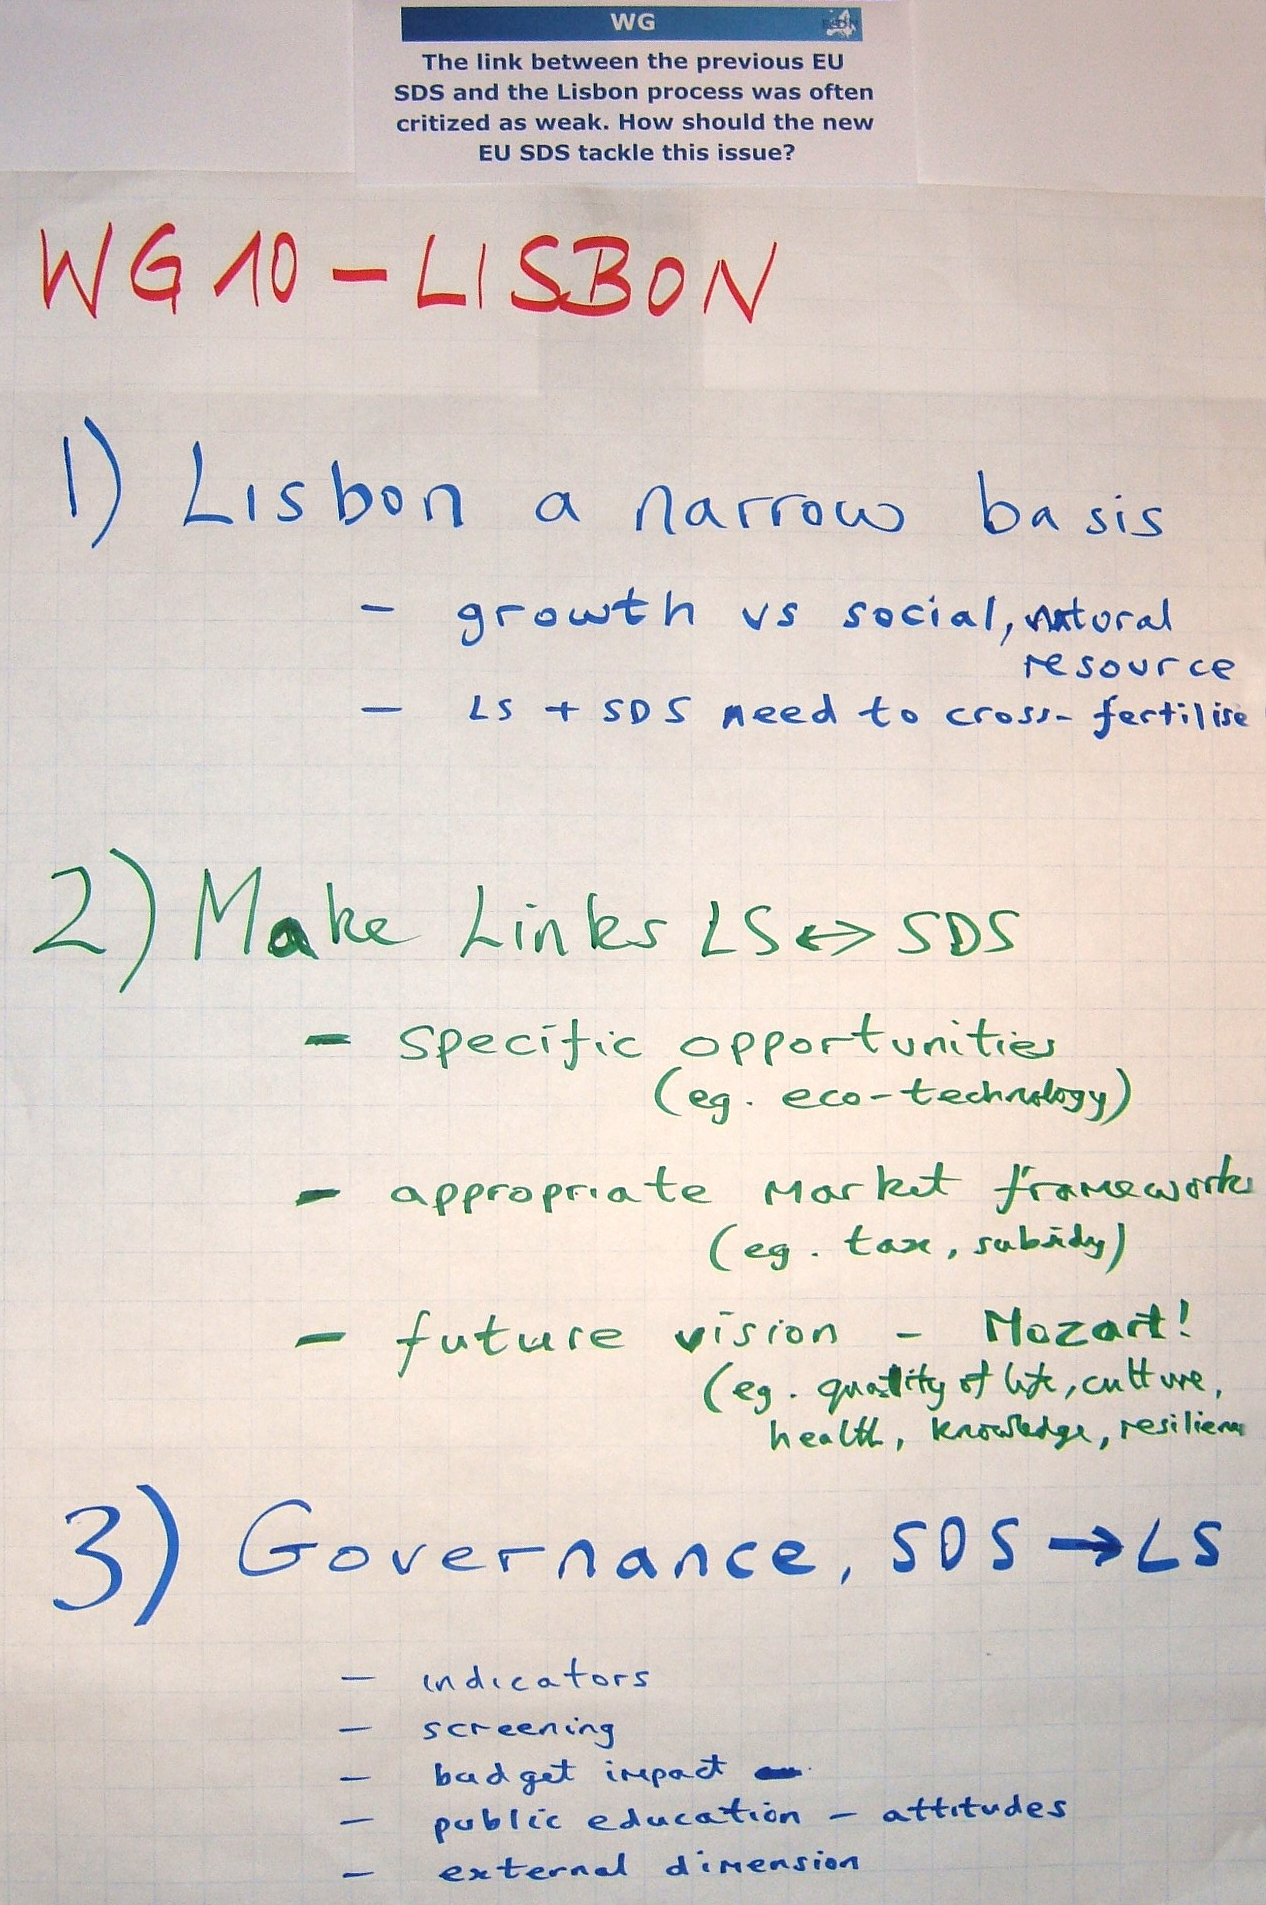 WG
The link between the previous EU
SDS and the Lisbon process was often
critized as weak. How should the new
EU SDS tackle this issue?
WG 10 - LISBON
1) Lisbon a narrow basis
- growth vs social, natural
resource
- LS + SDS need to cross-fertilise
2) Make Links LS ↔ SDS
- specific opportunities
(eg. eco-technology)
- appropriate market frameworks
(eg. tax, subsidy)
- future vision - Mozart!
(eg. quality of life, culture,
health, knowledge, resilience
3) Governance, SDS → LS
- indicators
- screening
- budget impact
- public education - attitudes
- external dimension